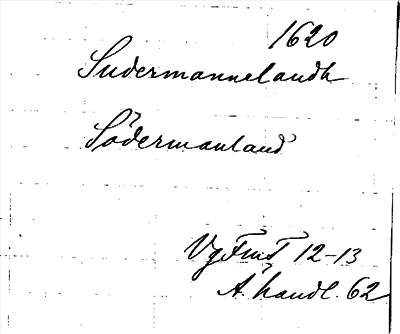 1620
Sudermannelandh
Södermanland
VgFmT 12-13
A. handl. 62